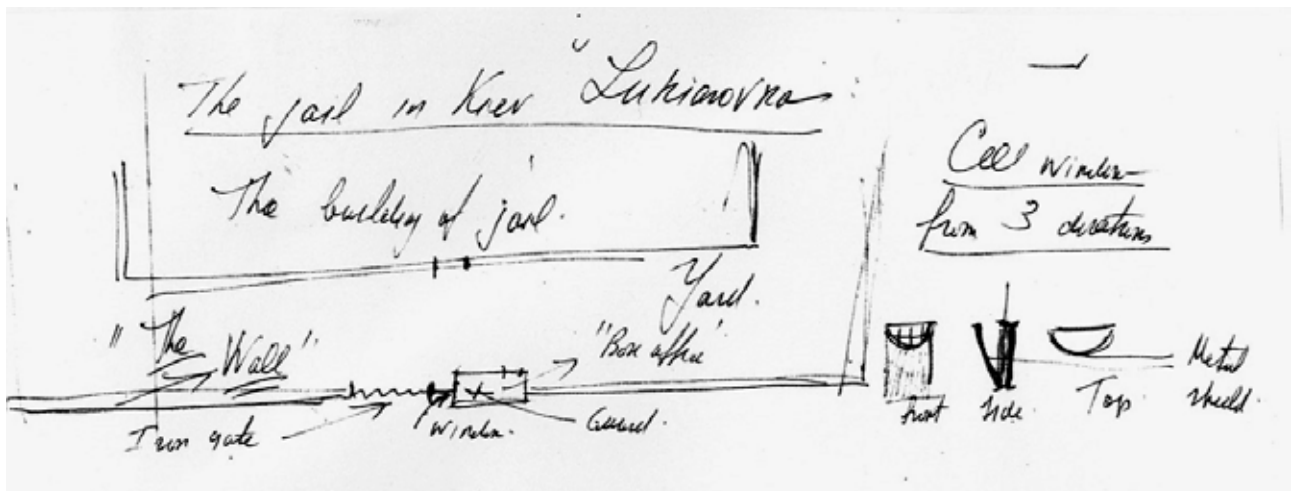 The jail in Kiev "Lukianovka
The building of jail.
Yard.
"The Wall"
"Box office"
Iron gate
Window.
Guard.
Cell window
from 3 directions
front
side
Top
Metal shield.